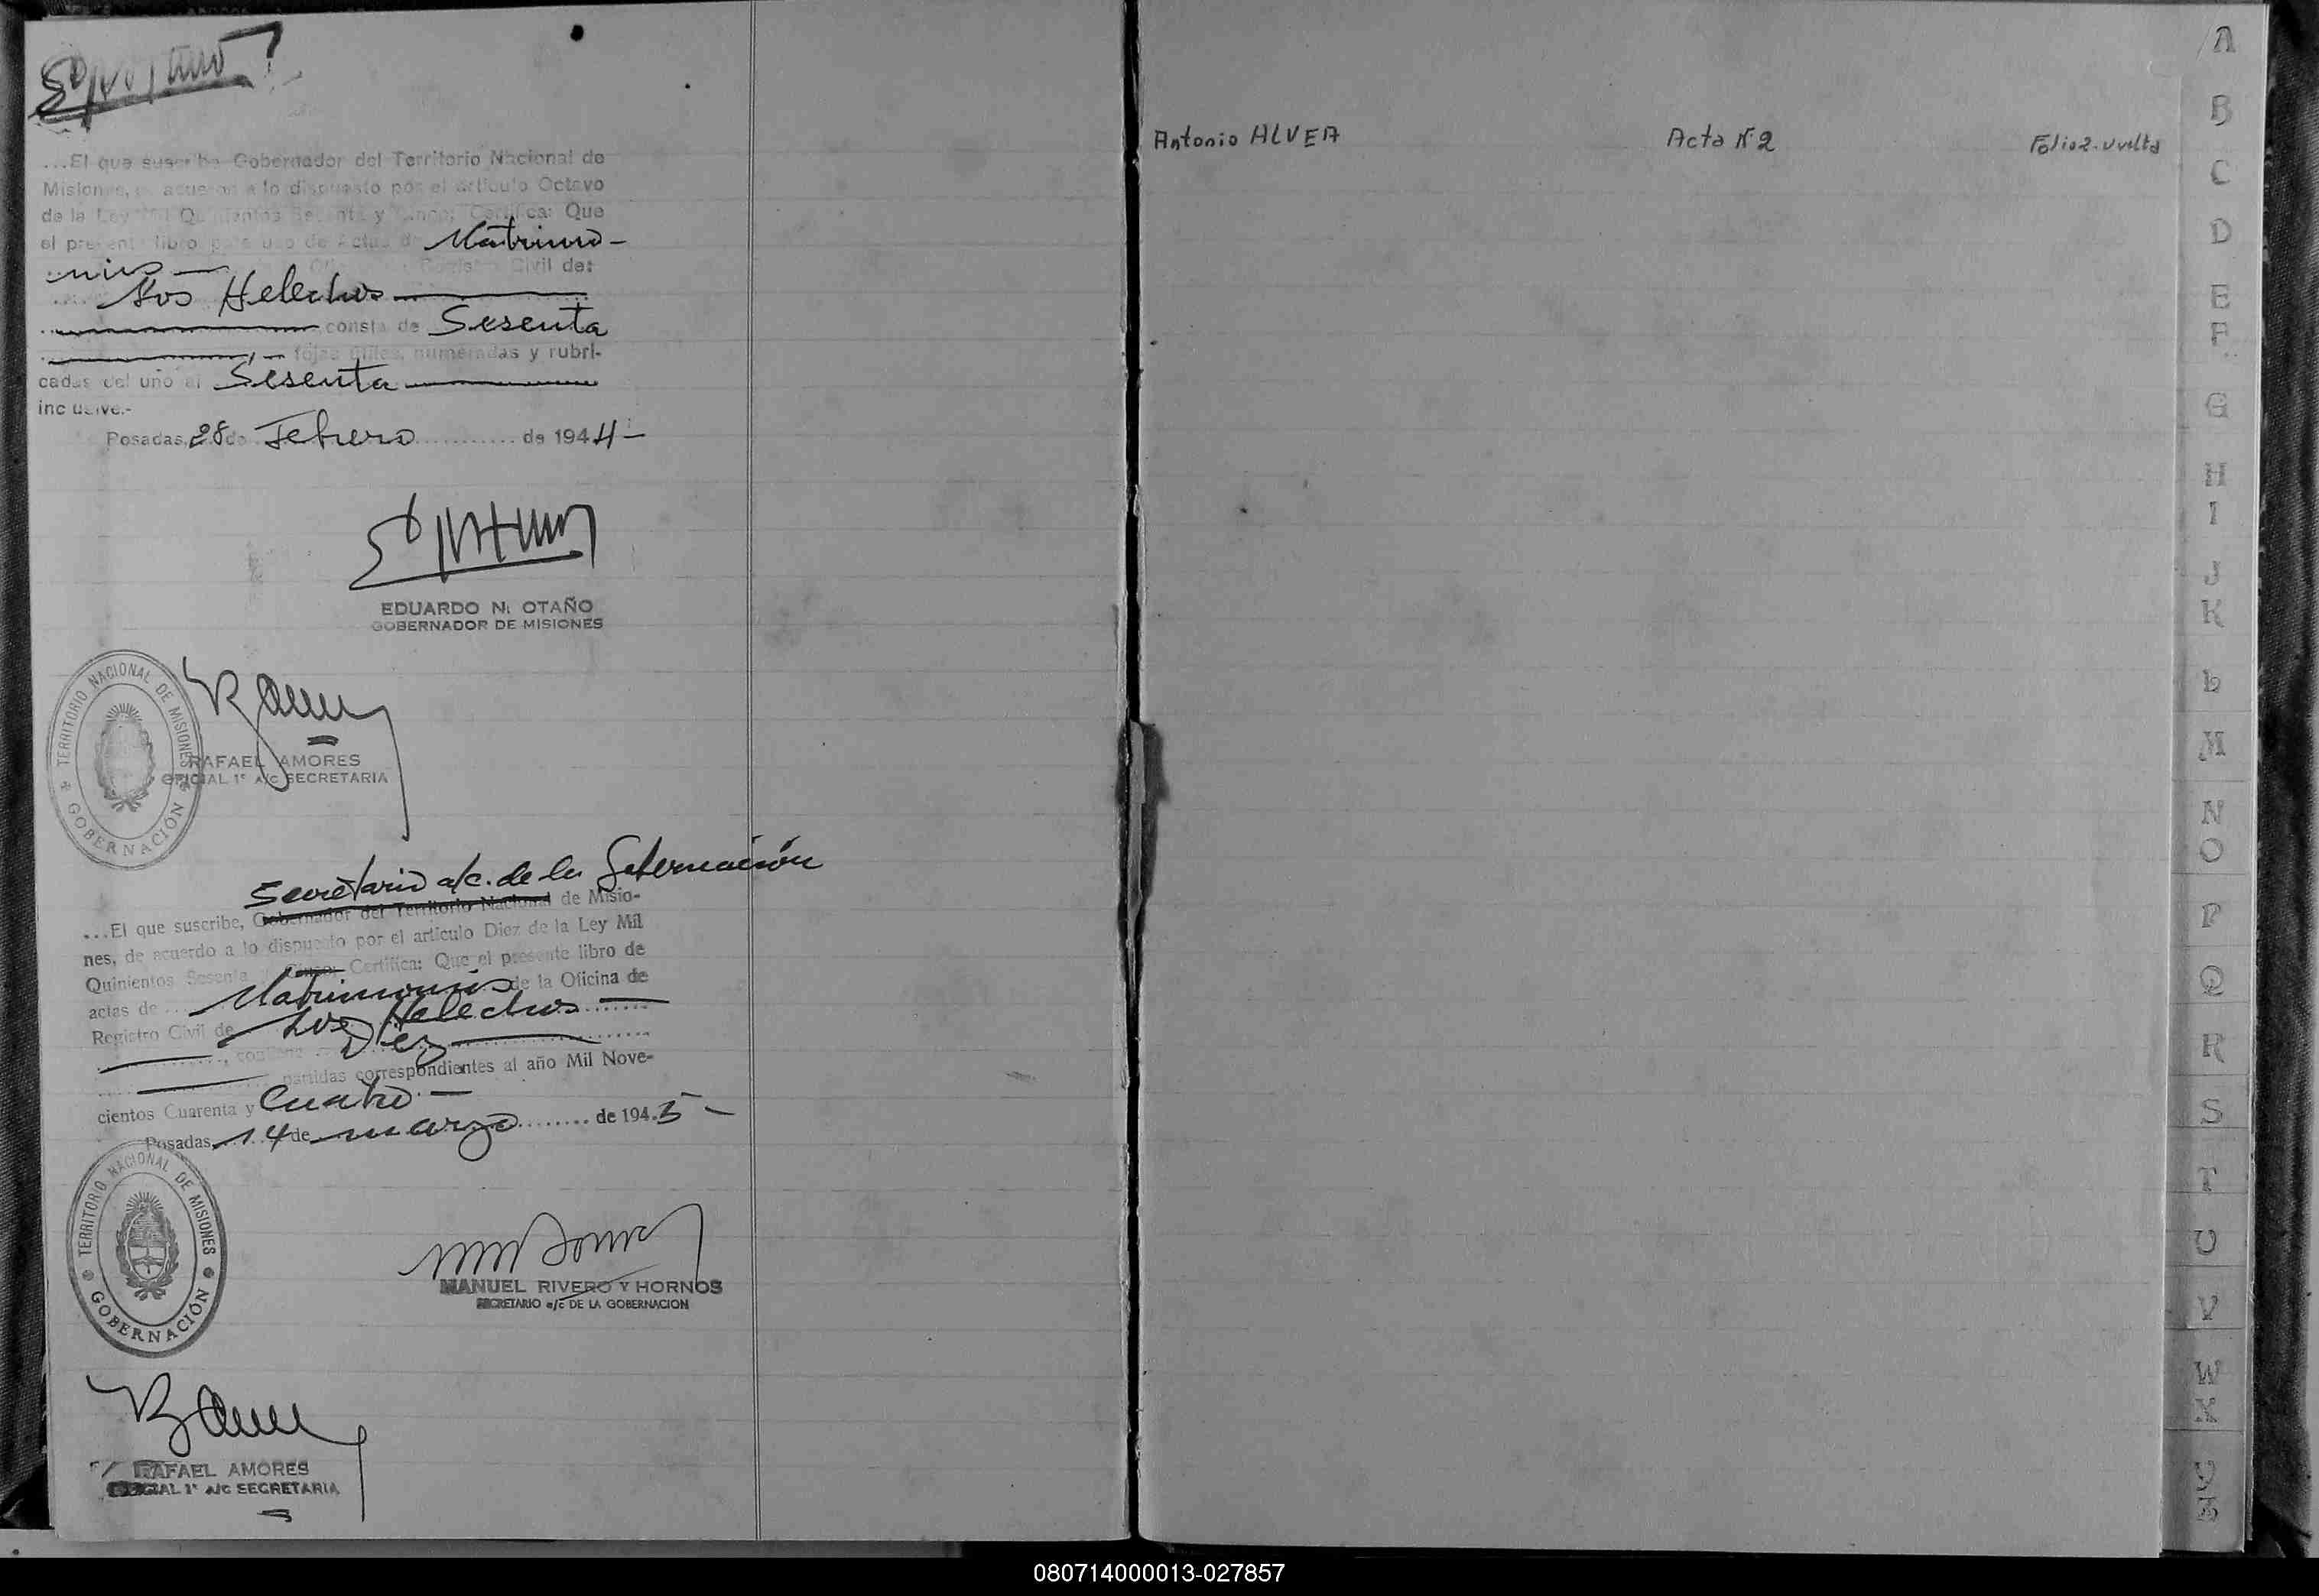 ...El que suscribe Gobernador del Territorio Nacional de
Misiones, de acuerdo a lo dispuesto por el artículo Octavo
de la Ley Mil Quinientos Sesenta y Cinco; Certifica: Que
el presente libro para uso de Actas de Matrimo-
nios Oficina de Registro Civil de:
Los Helechos
consta de Sesenta
fojas útiles, numeradas y rubri-
cadas del uno al Sesenta
inclusive.-
Posadas, 28 de Febrero de 1944-
EDUARDO N. OTAÑO
GOBERNADOR DE MISIONES
TERRITORIO NACIONAL DE MISIONES
GOBERNACIÓN
RAFAEL AMORES
OFICIAL 1º A/C SECRETARIA
Secretario a/c. de la Gobernación
...El que suscribe, Gobernador del Territorio Nacional de Misio-
nes, de acuerdo a lo dispuesto por el artículo Diez de la Ley Mil
Quinientos Sesenta y Cinco; Certifica: Que el presente libro de
actas de Matrimonios de la Oficina de
Registro Civil de Los Helechos
, contiene Diez
partidas correspondientes al año Mil Nove-
cientos Cuarenta y Cuatro-
Posadas, 14 de marzo de 1945-
TERRITORIO NACIONAL DE MISIONES
GOBERNACIÓN
MANUEL RIVERO Y HORNOS
SECRETARIO a/c DE LA GOBERNACION
RAFAEL AMORES
OFICIAL 1º A/C SECRETARIA
Antonio ALVEA Acta Nº 2 Folio 2. vuelta
A
B
C
D
E
F
G
H
I
J
K
L
M
N
O
P
Q
R
S
T
U
V
W
X
Y
Z
080714000013-027857